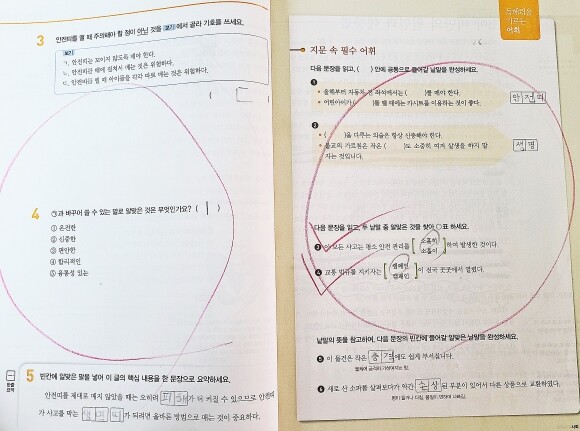 3 안전띠를 맬 때 주의해야 할 점이 아닌 것을 보기에서 골라 기호를 쓰세요.
보기
ㄱ. 안전띠는 꼬이지 않도록 매야 한다.
ㄴ. 안전띠를 목에 걸쳐서 매는 것은 위험하다.
ㄷ. 안전띠를 맬 때 아이들을 각각 따로 매는 것은 위험하다.
( ㄷ )
4 ㉠과 바꾸어 쓸 수 있는 말로 알맞은 것은 무엇인가요? ( 1 )
① 온전한
② 신중한
③ 편안한
④ 합리적인
⑤ 융통성 있는
5 빈칸에 알맞은 말을 넣어 이 글의 핵심 내용을 한 문장으로 요약하세요.
안전띠를 제대로 매지 않았을 때는 오히려 피해가 더 커질 수 있으므로 안전띠
가 사고를 막는 생명띠가 되려면 올바른 방법으로 매는 것이 중요하다.
독해력을
기르는
어휘
지문 속 필수 어휘
다음 문장을 읽고, ( ) 안에 공통으로 들어갈 낱말을 완성하세요.
❶
• 올해부터 자동차 전 좌석에서는 ( )를 매야 한다.
• 어린아이가 ( )를 맬 때에는 카시트를 이용하는 것이 좋다.
안전띠
❷
• ( )을 다루는 의술은 항상 신중해야 한다.
• 불교의 가르침은 작은 ( )도 소중히 여겨 살생을 하지 말
자는 것입니다.
생명
다음 문장을 읽고, 두 낱말 중 알맞은 것을 찾아 ○표 하세요.
❸ 이 모든 사고는 평소 안전 관리를 [소홀히 소홀이] 하여 발생한 것이다.
❹ 교통 법규를 지키자는 [캠페인 캠패인] 이 전국 곳곳에서 열렸다.
낱말의 뜻을 참고하여, 다음 문장의 빈칸에 들어갈 알맞은 낱말을 완성하세요.
❺ 이 물건은 작은 충격에도 쉽게 부서집니다.
❻ 새로 산 소파를 살펴보다가 약간 손상된 부분이 있어서 다른 상품으로 교환하였다.